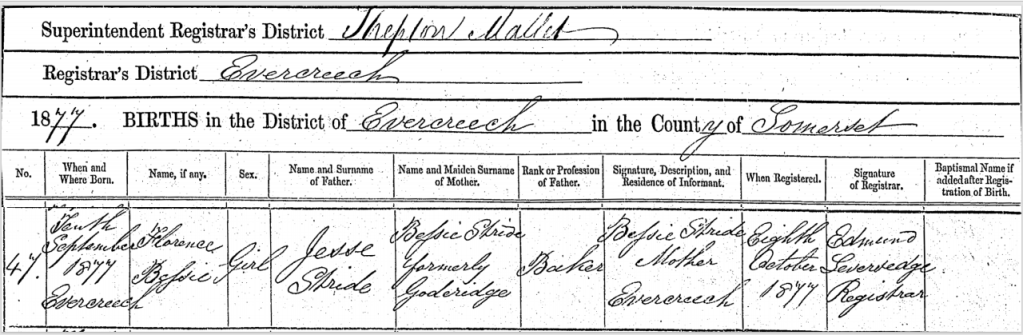 Superintendent Registrar's District Shepton Mallet
Registrar's District Evercreech
1877. BIRTHS in the District of Evercreech in the County of Somerset
No. When and Where Born. Name, if any. Sex. Name and Surname of Father. Name and Maiden Surname of Mother. Rank or Profession of Father. Signature, Description, and Residence of Informant. When Registered. Signature of Registrar. Baptismal Name if added after Registration of Birth.
47. Tenth September 1877 Evercreech Florence Bessie Girl Jesse Stride Bessie Stride formerly Goderidge Baker Bessie Stride Mother Evercreech Eighth October 1877 Edmund Leversedge Registrar